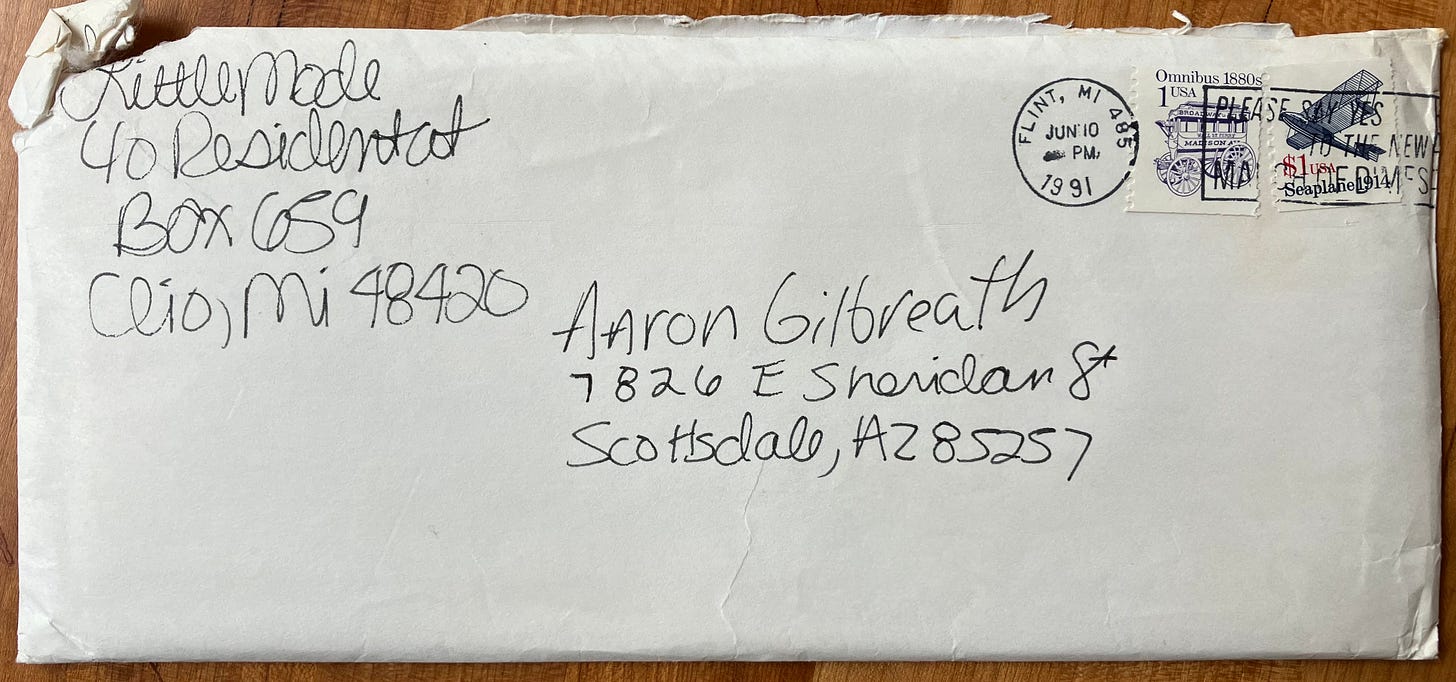 Little Mode
Resident at
Box 659
Clio, Mi 48420
FLINT, MI 485
JUN 10
PM
1991
Omnibus 1880s
1 USA
MADISON AV
$1 USA
Seaplane 1914
PLEASE SAY YES
TO THE NEW
MARCH OF DIMES
Aaron Gilbreath
7826 E Sheridan St
Scottsdale, AZ 85257